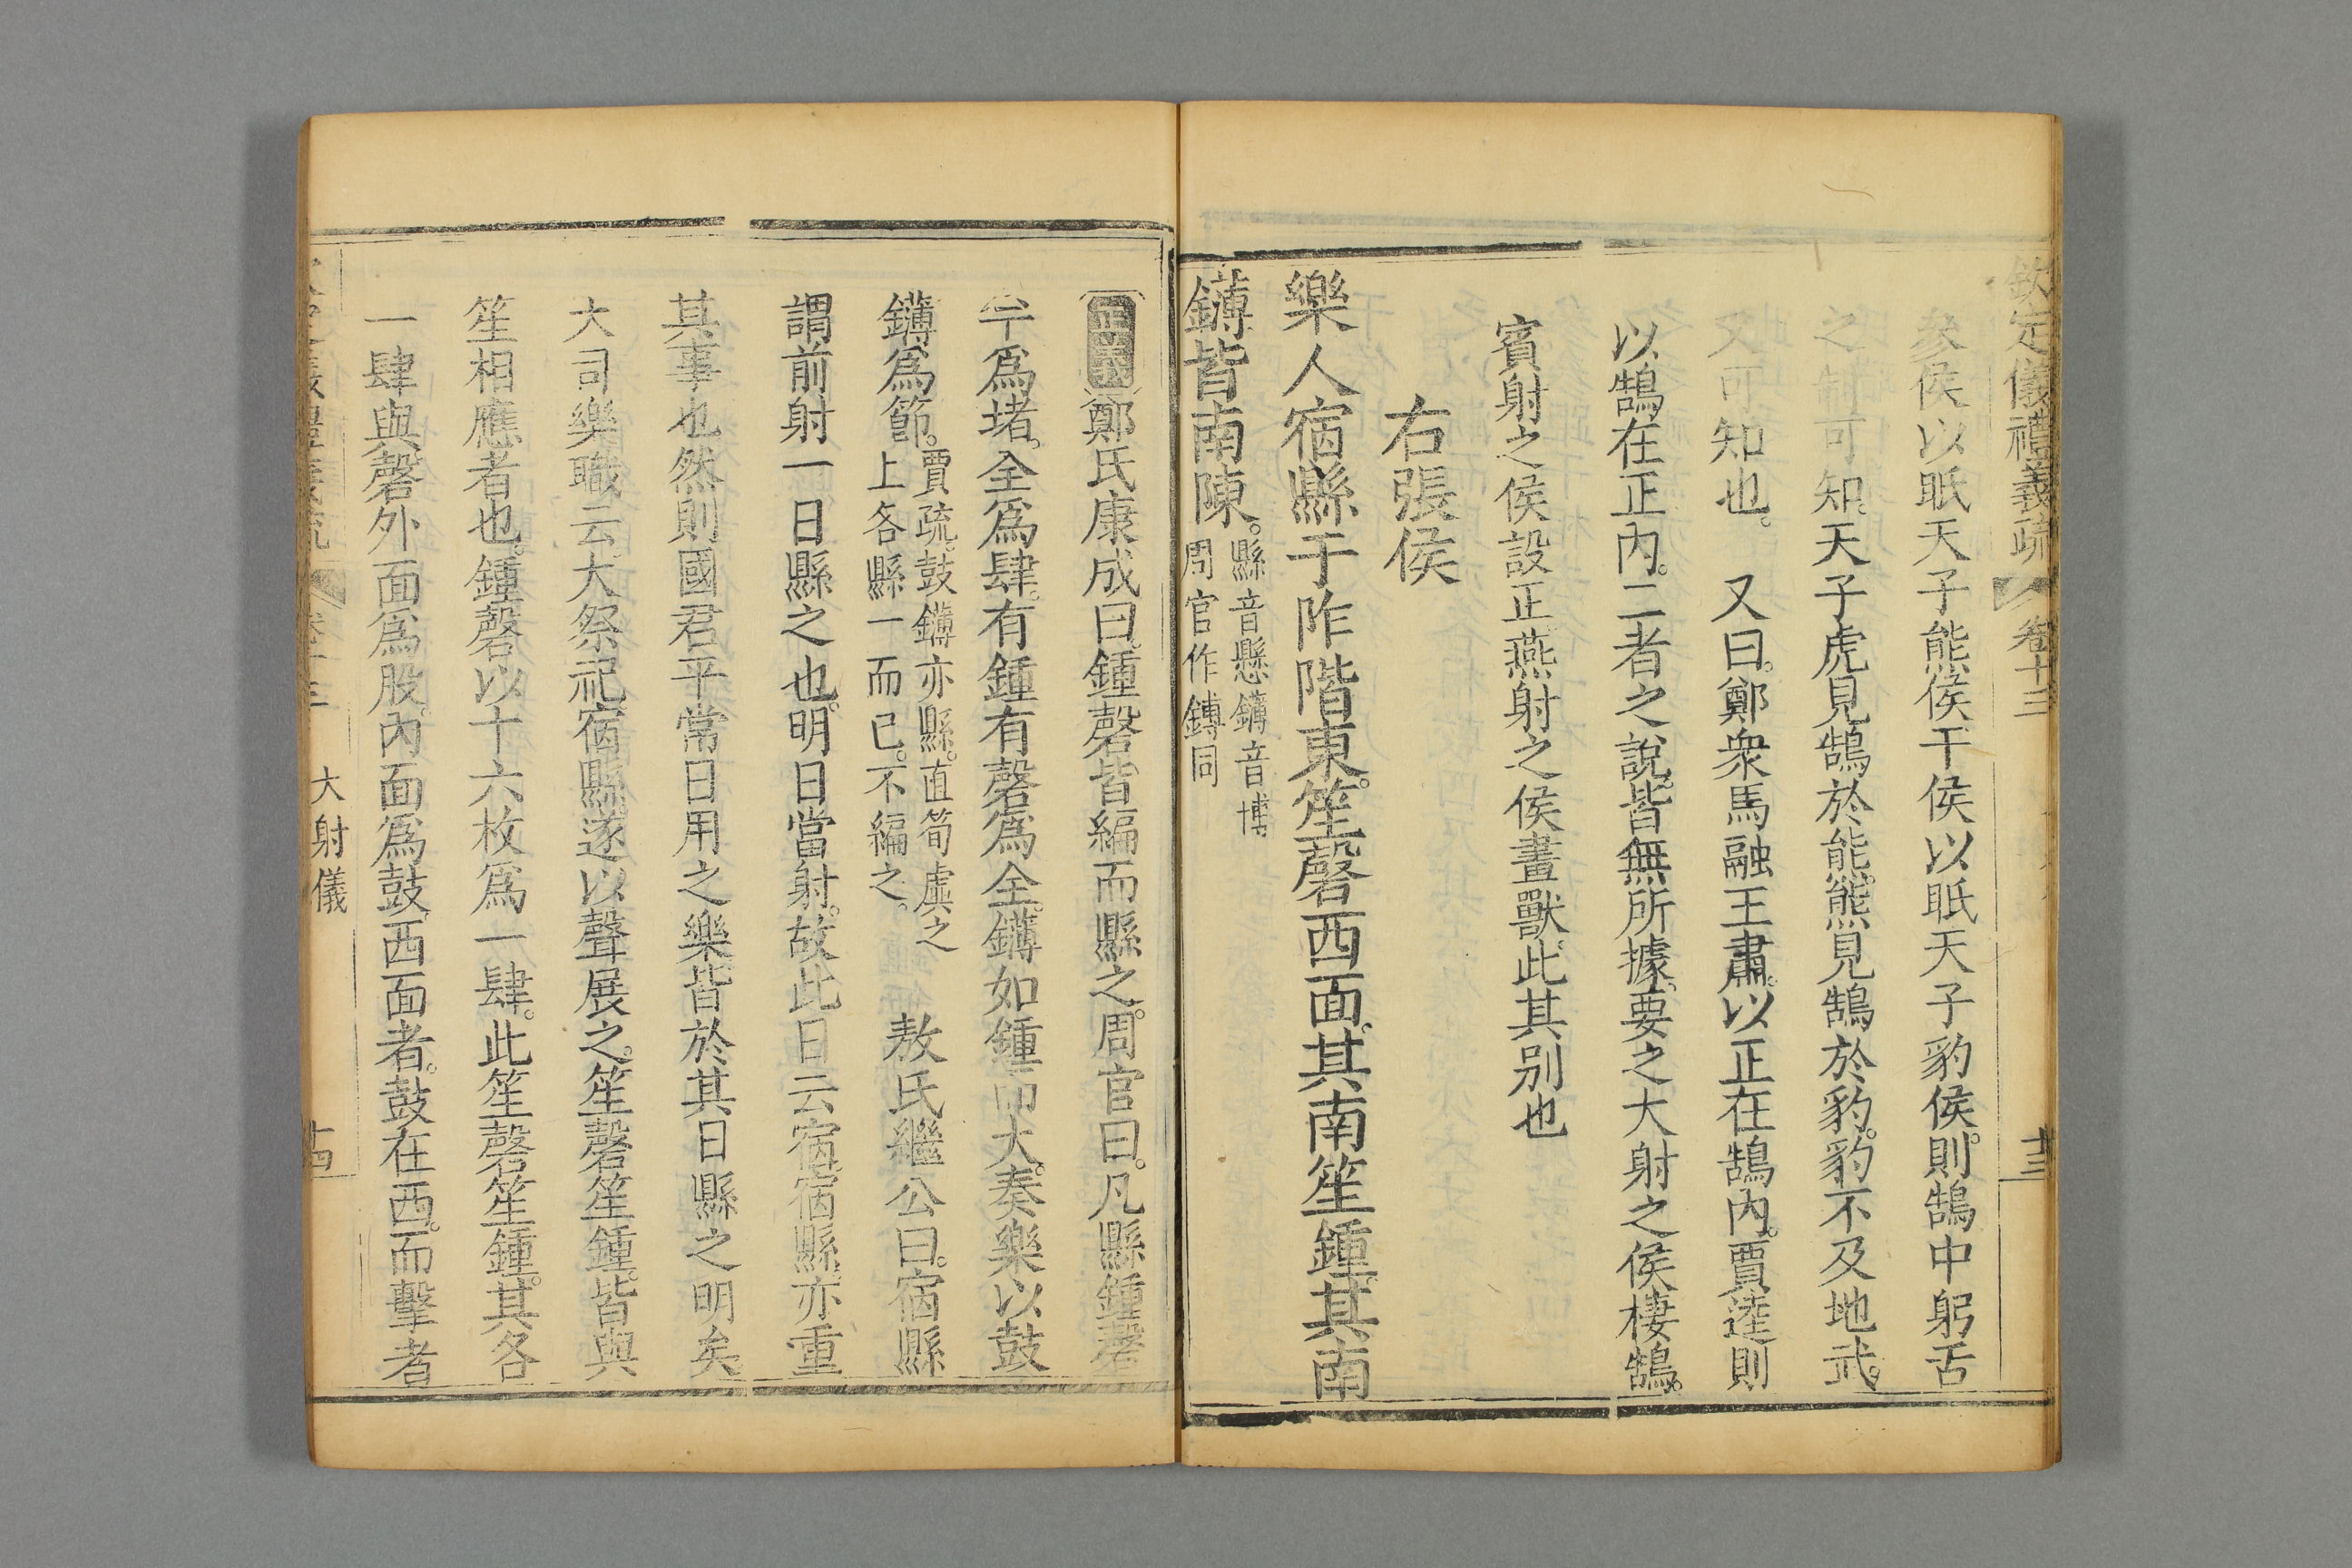 欽定儀禮義疏 卷十三 十三
矣侯以眂天子熊侯干侯以眂天子豹侯則鵠中躬舌
之制可知天子虎見鵠於熊熊見鵠於豹豹不及地武
又可知也。 又曰鄭衆馬融王肅以正在鵠內賈逵則
以鵠在正內二者之說皆無所據要之大射之侯棲鵠
賓射之侯設正燕射之侯畫獸此其别也
右張侯
樂人宿縣于阼階東笙磬西面其南笙鍾其南
鑮皆南陳。縣音懸鑮音博
周官作鎛同
正義 鄭氏康成曰鍾磬皆編而縣之周官曰凡縣鍾磬
半為堵全為肆有鍾有磬為全鑮如鍾而大奏樂以鼓
鑮為節。賈疏鼓鑮亦縣直筍虡之
上各縣一而已不編之。 敖氏繼公曰宿縣
謂前射一日縣之也明日當射故此日云宿宿縣亦重
其事也然則國君平常日用之樂皆於其日縣之明矣
大司樂職云大祭祀宿縣遂以聲展之笙磬笙鍾皆與
笙相應者也鍾磬以十六枚為一肆此笙磬笙鍾其各
一肆與磬外面為股內面為鼓西面者鼓在西而擊者
儀禮義疏 卷十三 大射儀 十四